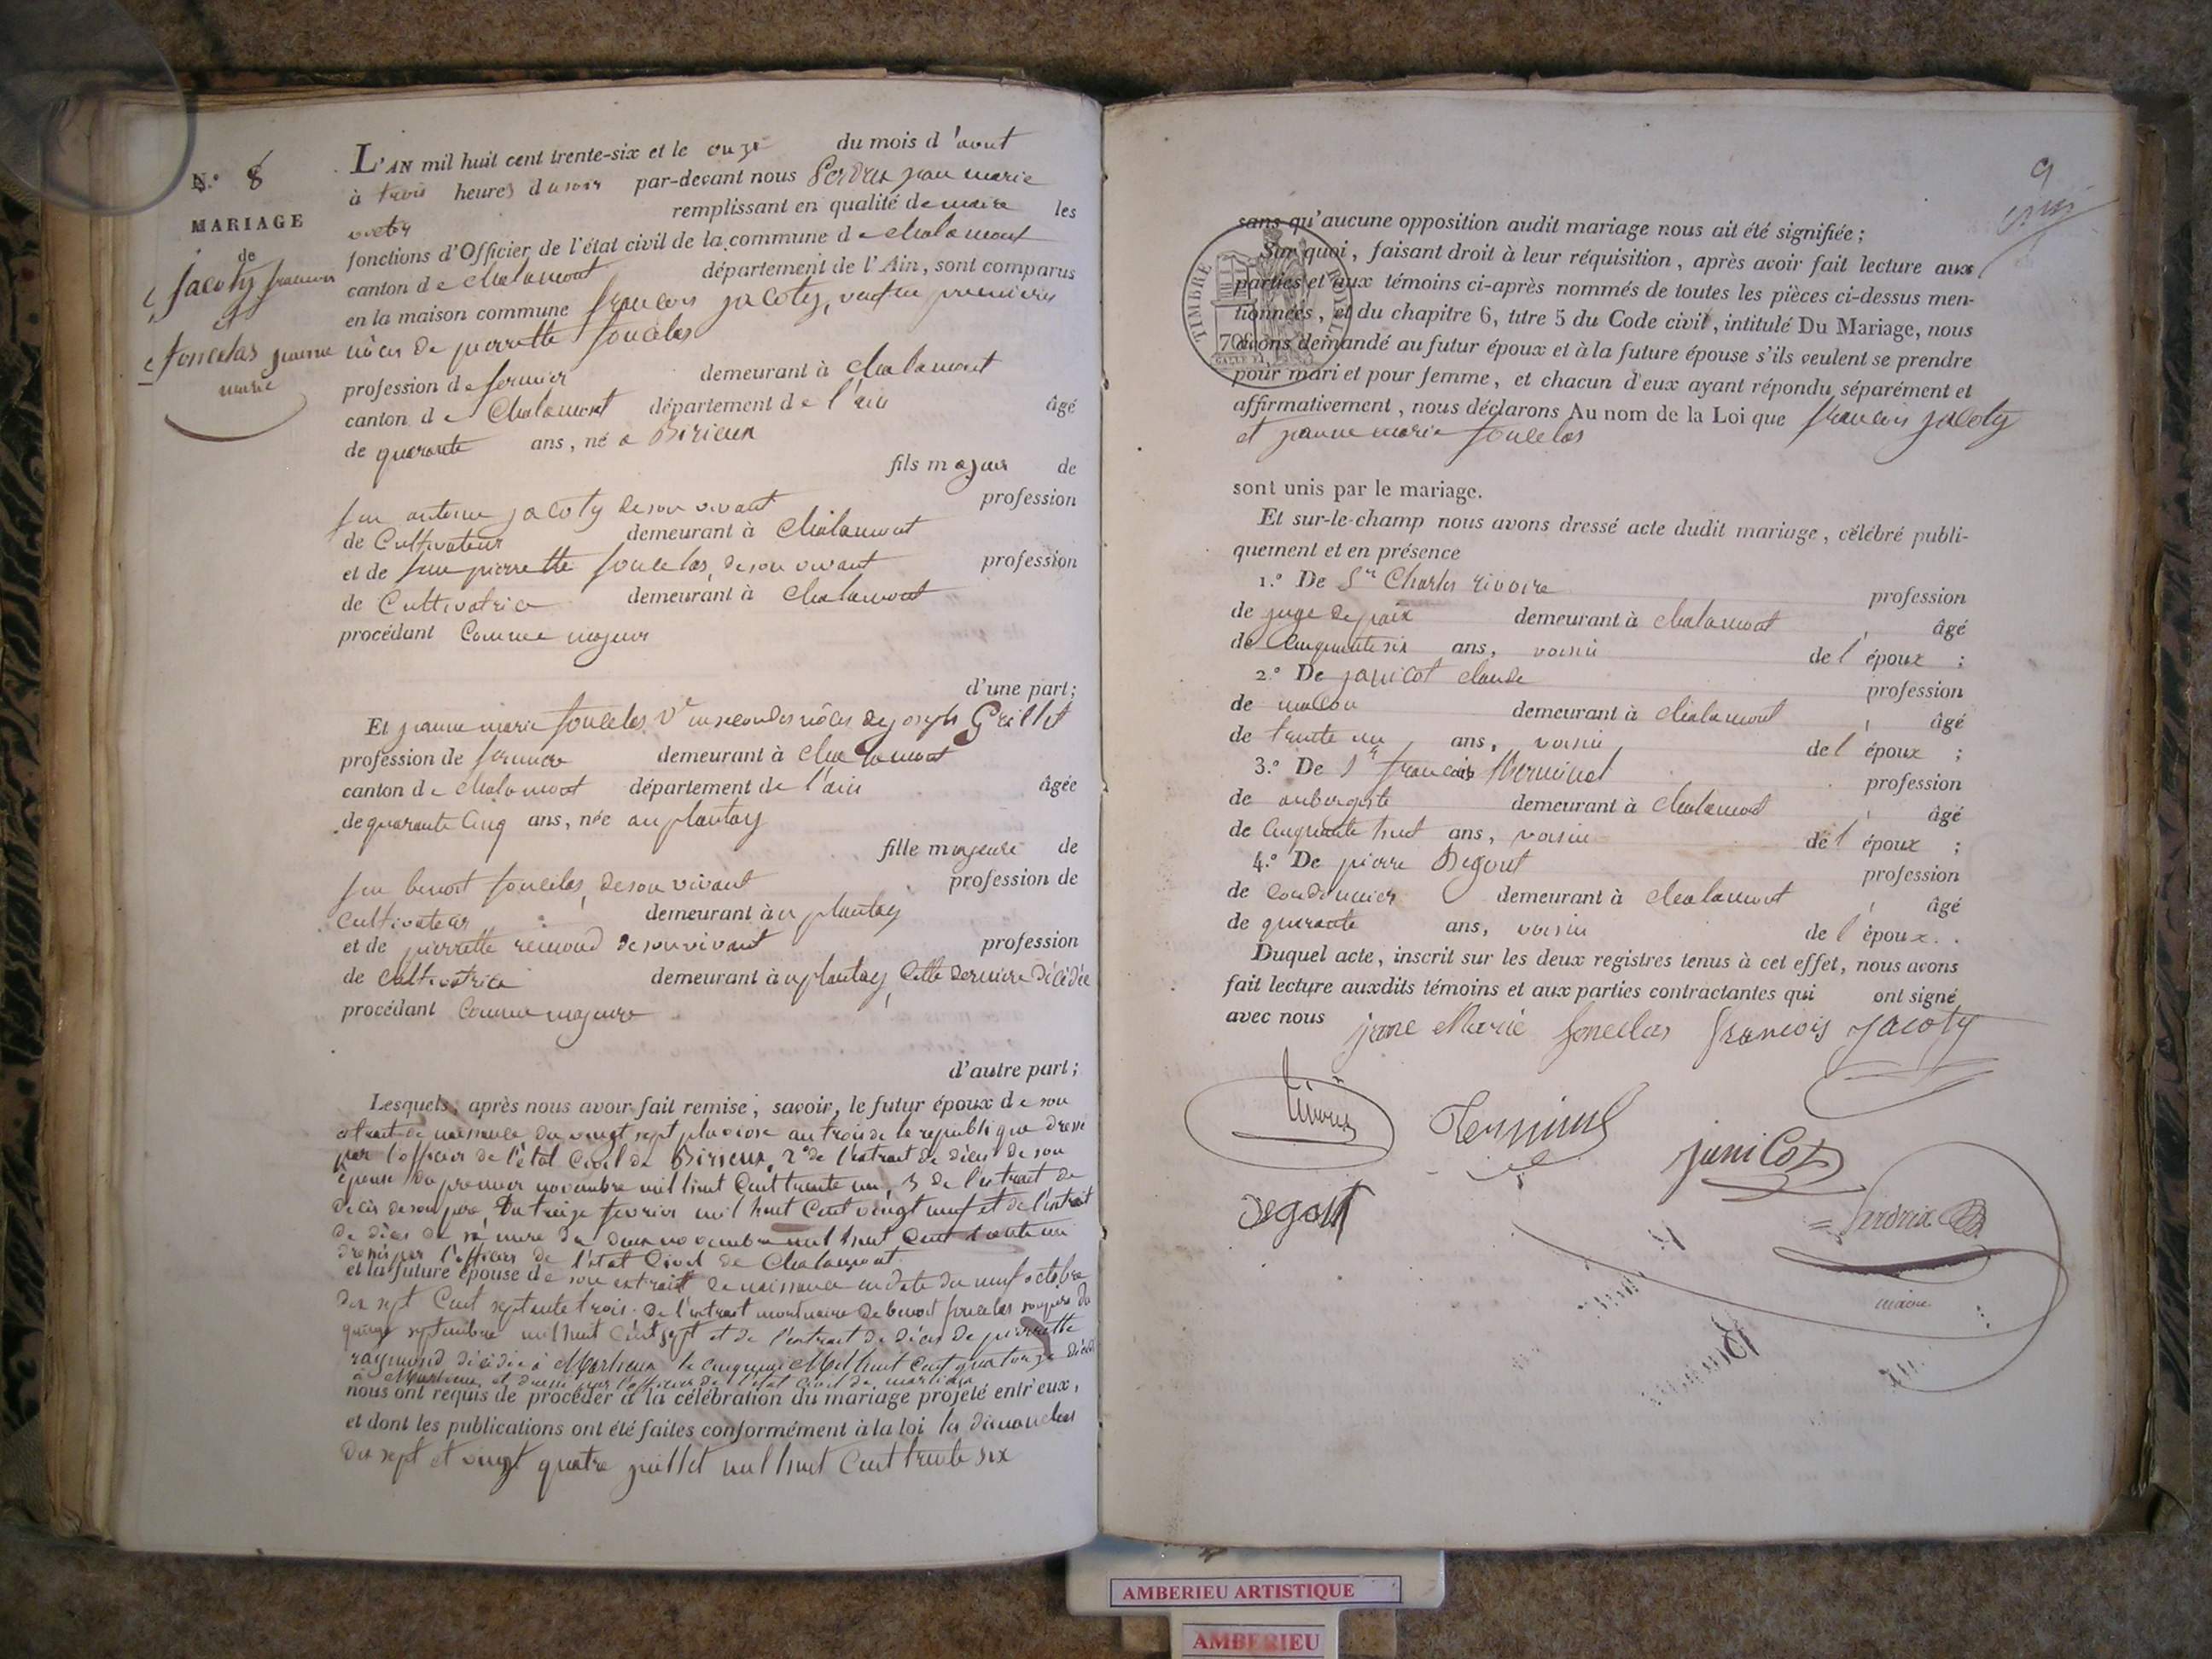 N.º 8
MARIAGE
de
Jacoty francois
et
foncelas jeanne
marie
L'AN mil huit cent trente-six et le onze du mois d'aout
à trois heures du soir par-devant nous jean marie
remplissant en qualité de maire les
fonctions d'Officier de l'état civil de la commune de chalamont
canton de chalamont département de l'Ain, sont comparus
en la maison commune francois jacoty, veuf en premieres
nôces de pierrette foncelas
profession de fermier demeurant à chalamont
canton de Chalamont département de l'ain âgé
de quarante ans, né a Birieux
fils majeur de
feu antoine jacoty de son vivant profession
de Cultivateur demeurant à chalamont
et de feue pierrette foncelas, de son vivant profession
de Cultivatrice demeurant à chalamont
procédant Comme majeur
d'une part;
Et jeanne marie foncelas Vᵉ en secondes nôces de joseph Grillet
profession de fermiere demeurant à chalamont
canton de chalamont département de l'ain âgée
de quarante cinq ans, née au plantay
fille majeure de
feu benoit foncelas, de son vivant profession de
Cultivateur demeurant au plantay
et de pierrette remond de son vivant profession
de cultivatrice demeurant au plantay, Cette derniere décédée
procédant Comme majeure
d'autre part;
Lesquels, après nous avoir fait remise, savoir, le futur époux de son
extrait de naissance du vingt sept pluviose an trois de la republique dressé
par l'officier de l'état Civil de Birieux, 2° de l'extrait de décès de son
épouse du premier novembre mil huit Cent trente un, 3 de l'extrait de
décès de son pere, du treize fevrier mil huit Cent vingt neuf et de l'extrait
de décès de sa mere du deux novembre mil huit Cent trente un
dressés par l'officier de l'état Civil de Chalamont.
et la future épouse de son extrait de naissance en date du neuf octobre
dix sept Cent septante trois. de l'extrait mortuaire de benoit foncelas son pere du
quinze septembre mil huit Cent sept et de l'extrait de décès de pierrette
raymond décédée à Marlieux le cinq mai Mil huit Cent quatorze
à Marlieux et dressé par l'officier de l'état Civil de marlieux
nous ont requis de procéder à la célébration du mariage projeté entr'eux,
et dont les publications ont été faites conformément à la loi les dimanches
dix sept et vingt quatre juillet mil huit Cent trente six
9
sans qu'aucune opposition audit mariage nous ait été signifiée;
Sur quoi, faisant droit à leur réquisition, après avoir fait lecture aux
parties et aux témoins ci-après nommés de toutes les pièces ci-dessus men-
tionnées, et du chapitre 6, titre 5 du Code civil, intitulé Du Mariage, nous
avons demandé au futur époux et à la future épouse s'ils veulent se prendre
pour mari et pour femme, et chacun d'eux ayant répondu séparément et
affirmativement, nous déclarons Au nom de la Loi que francois jacoty
et jeanne marie foncelas
TIMBRE ROYAL
70
sont unis par le mariage.
Et sur-le-champ nous avons dressé acte dudit mariage, célébré publi-
quement et en présence
1.º De Sr Charles rivoire profession
de juge de paix demeurant à chalamont, âgé
de Cinquante six ans, voisin de l'époux;
2.º De janicot claude profession
de macon demeurant à chalamont, âgé
de trente un ans, voisin de l'époux;
3.º De Sr francois profession
de aubergiste demeurant à chalamont, âgé
de Cinquante huit ans, voisin de l'époux;
4.º De pierre Degout profession
de cordonnier demeurant à chalamont, âgé
de quarante ans, voisin de l'époux.
Duquel acte, inscrit sur les deux registres tenus à cet effet, nous avons
fait lecture auxdits témoins et aux parties contractantes qui ont signé
avec nous jane Marie foncellas francois jacoty
janicot
degout
maire
AMBERIEU ARTISTIQUE
AMBERIEU